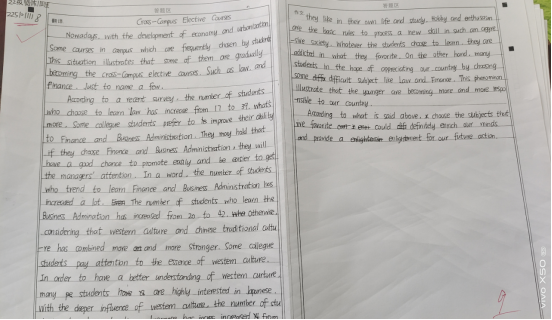 答题区
Cross-Campus Elective Courses
Nowadays, with the development of economy and urbanization,
Some courses in campus which are frequently chosen by students
This situation illustrates that some of them are gradually
becoming the cross-campus elective courses. Such as law, and
finance. Just to name a few.
According to a recent survey, the number of students
who choose to learn law has increase from 17 to 29. what's
more. Some collegue students prefer to improve their ability
to Finance and Business Administration. They may hold that
if they choose Finance and Business Administration, they will
have a good chance to promote easily and be easier to get
the managers' attention. In a word, the number of students
who trend to learn Finance and Business Administration has
increased a lot. The number of students who learn the
Business Admination has increased from 20 to 42. otherwise,
considering that western culture and chinese traditional cultu
-re has combined more and more stronger. Some collegue
students pay attention to the essence of western culture.
In order to have a better understanding of western culture,
many students are highly interested in Japanese.
With the deeper influence of western culture, the number of stu
increased from
答题区
they like in their own life and study. Hobby and enthusiasm
are the basic rules to process a new skill in such an aggre
-sive society. Whatever the students choose to learn, they are
addicted in what they favorite. On the other hand, many
students in the hope of appreciating our country by choosing
some difficult subject like Law and Finance. This phenomenon
illustrate that the younger are becoming more and more respo
-nsible to our country.
According to what is said above, choose the subjects that
are favorite could definitely enrich our minds
and provide a enlightenment for our future action.
9